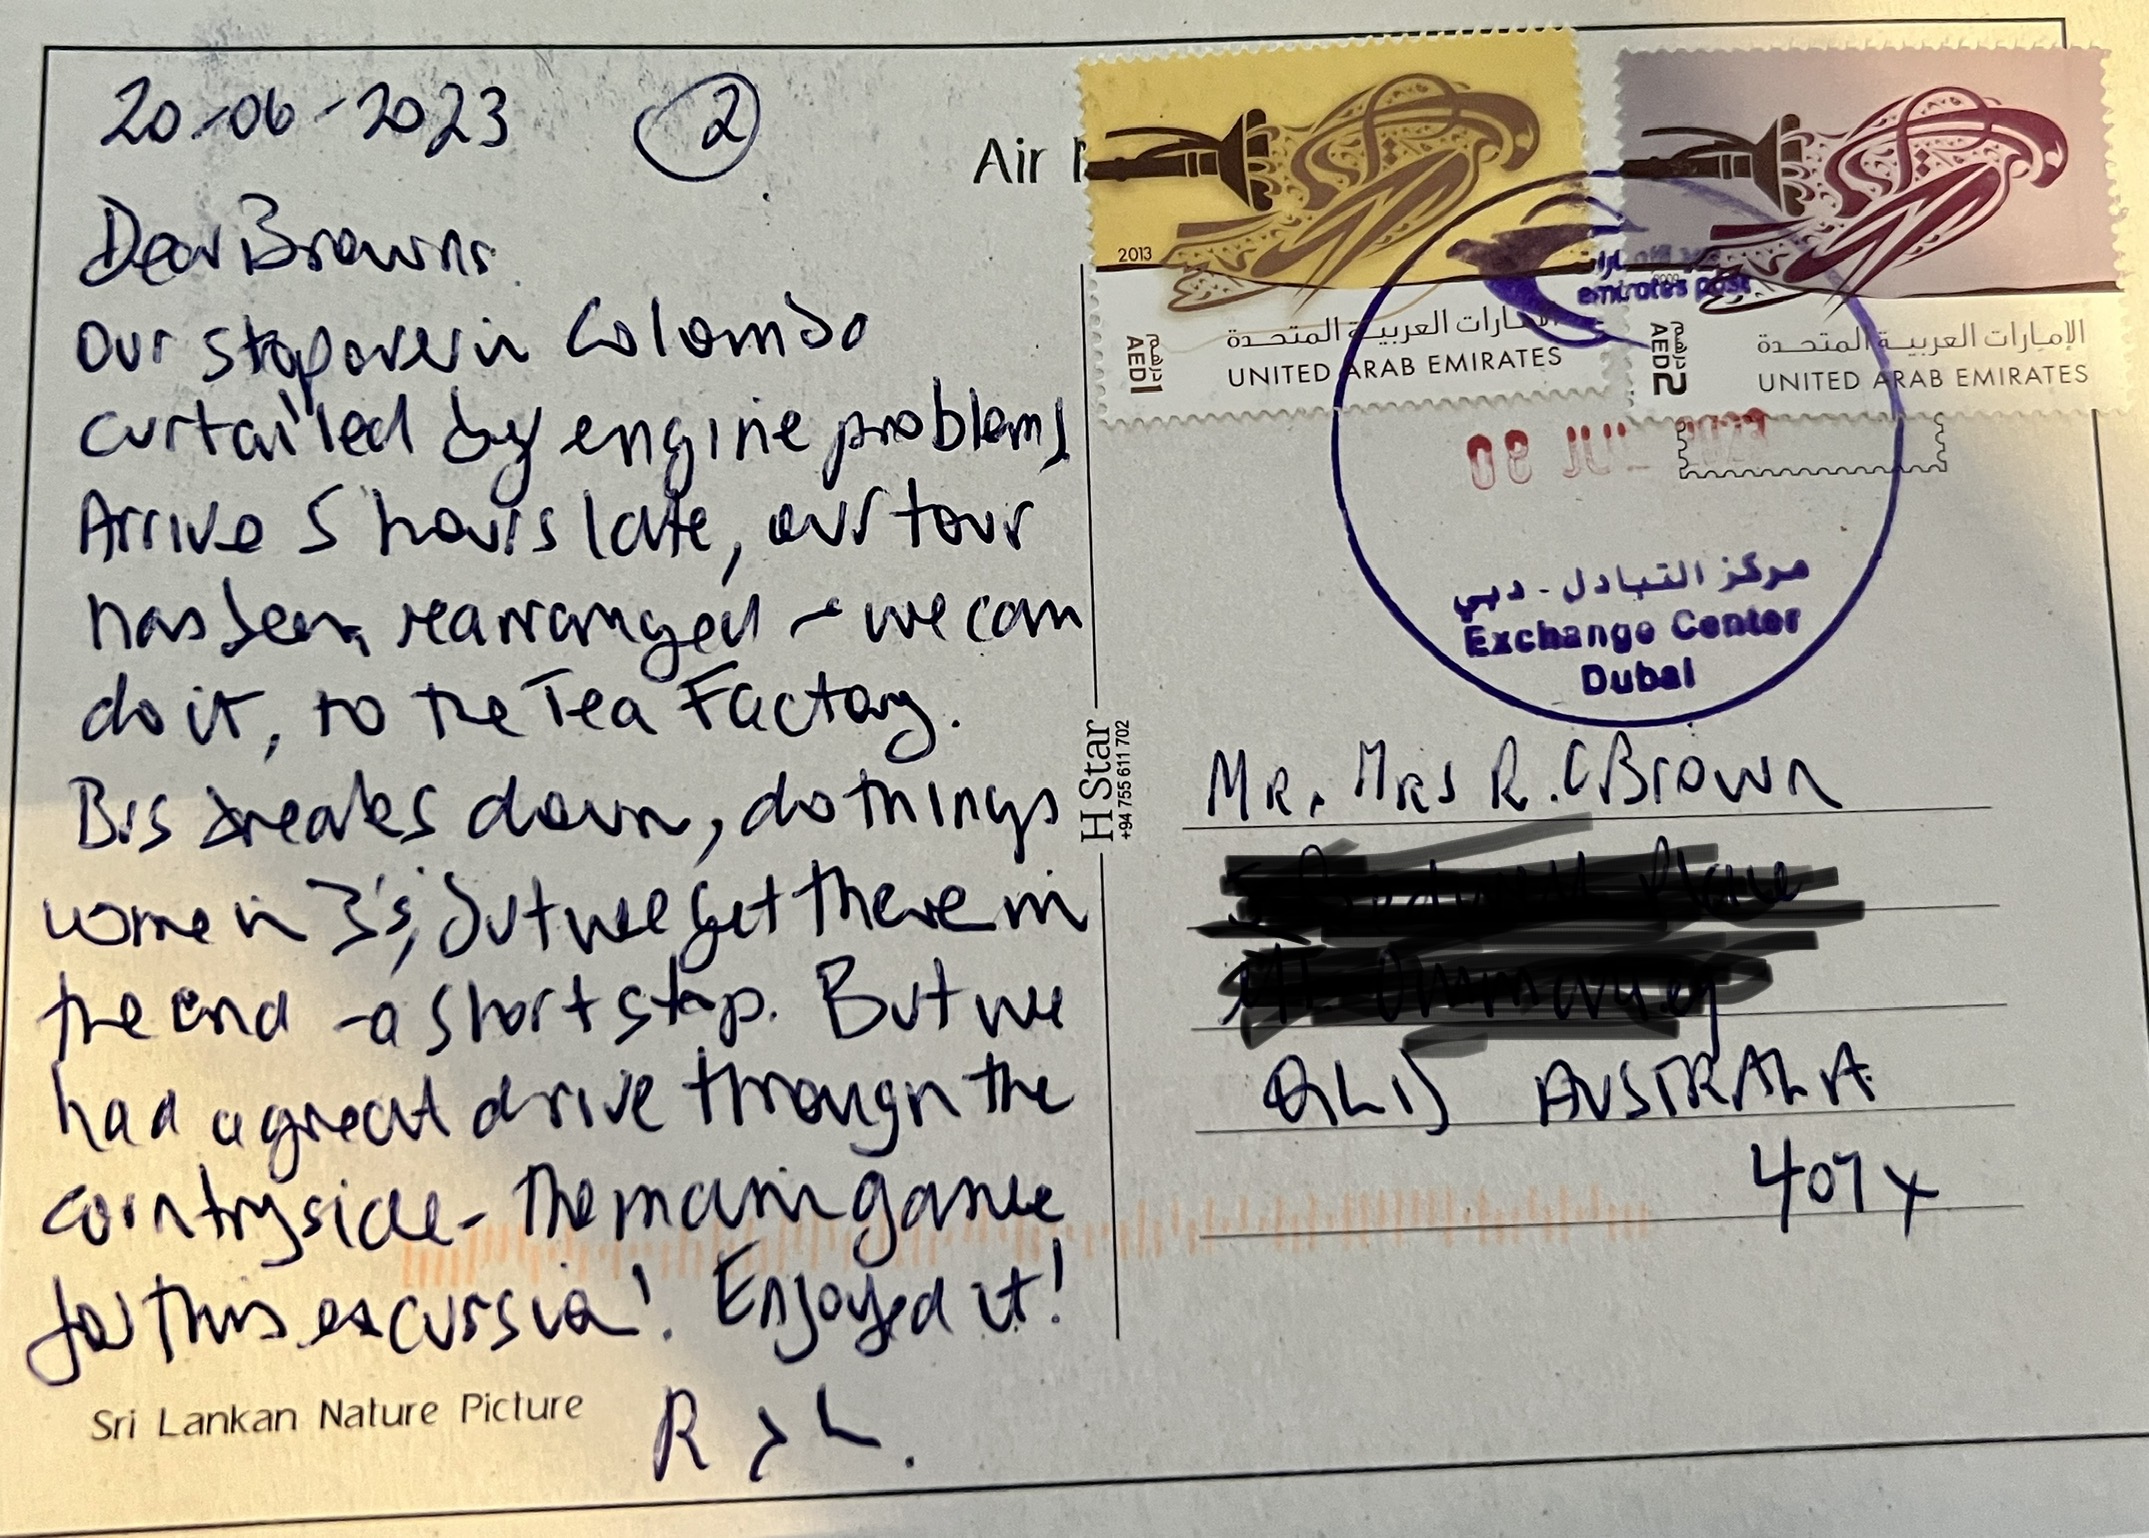 20-06-2023 ②
Dear Browns
Our stopover in Colombo
curtailed by engine problems
Arrive 5 hours late, our tour
has been rearranged - we can
do it, to the Tea Factory.
Bus breaks down, do things
come in 3's, but we get there in
the end - a short stop. But we
had a great drive through the
countryside - the main game
for this excursion! Enjoyed it!
R & L.
Sri Lankan Nature Picture
H Star
+94 755 611 702
Air
2013
AED 1
درهم
الإمارات العربية المتحدة
UNITED ARAB EMIRATES
AED 2
درهم
الإمارات العربية المتحدة
UNITED ARAB EMIRATES
emirates post
08 JUL 2023
مركز التبادل - دبي
Exchange Center
Dubai
Mr. Mrs R. C Brown
QLD AUSTRALIA
407x